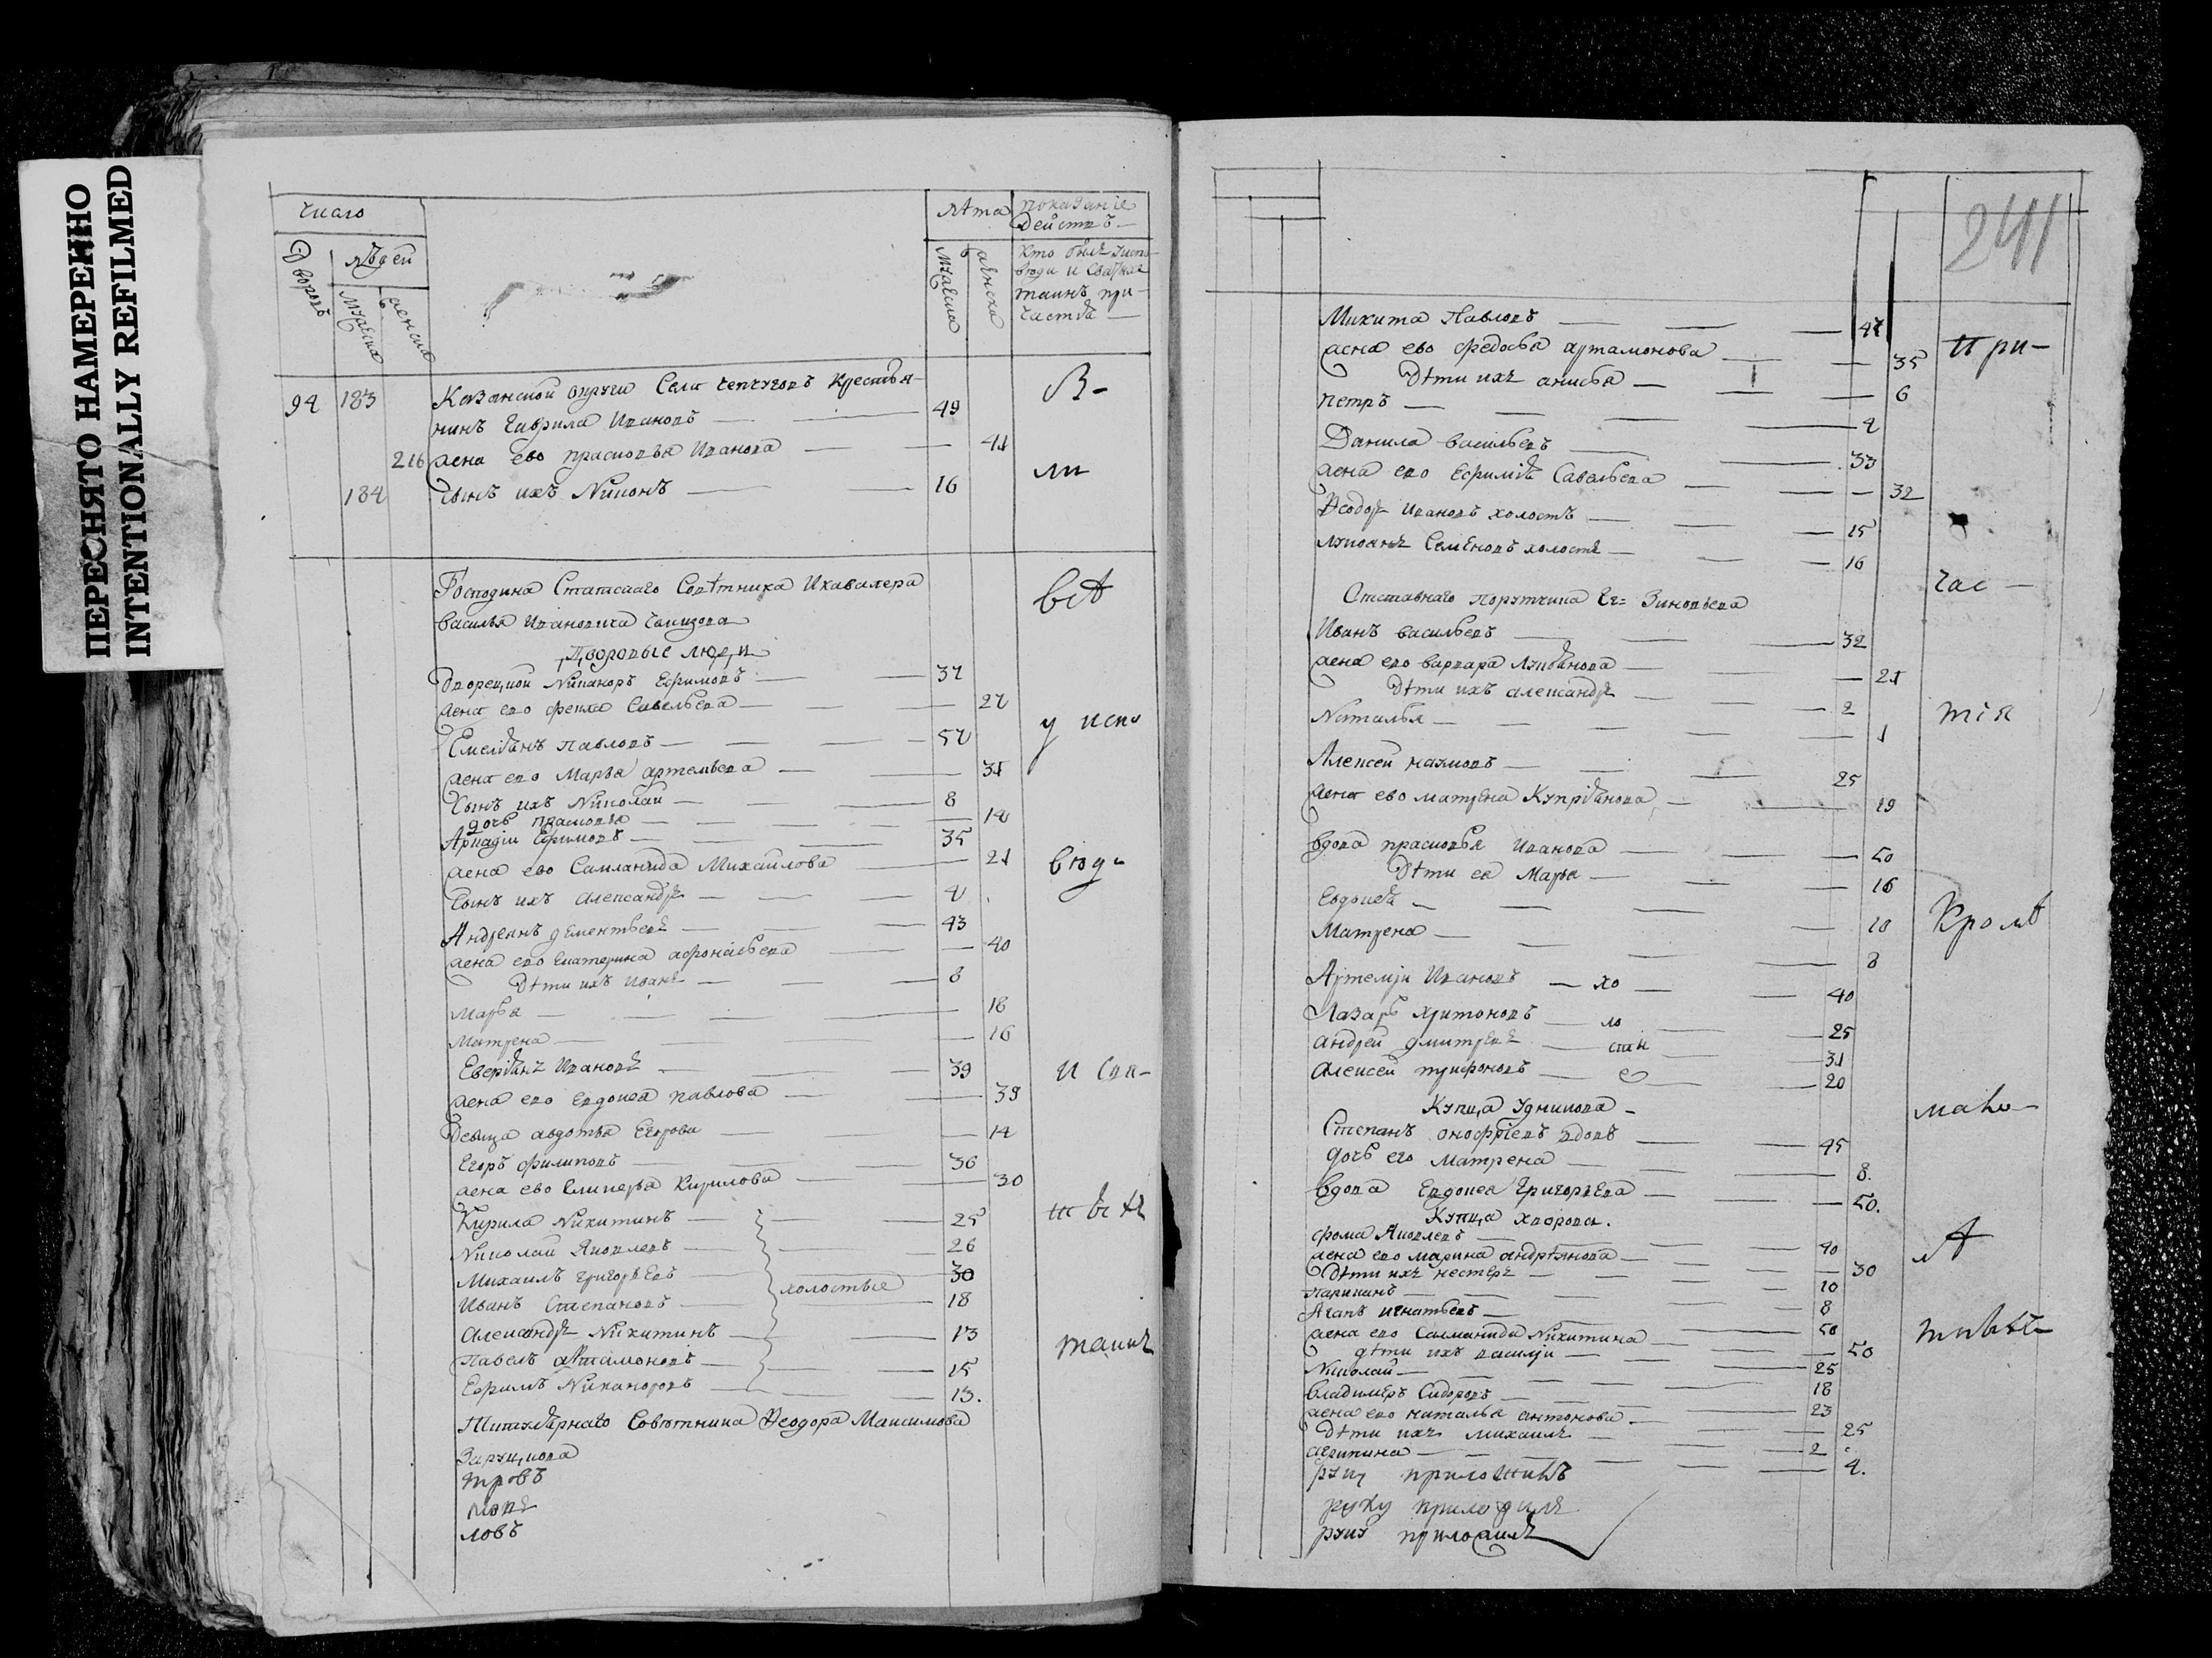 ПЕРЕСНЯТО НАМЕРЕННО
INTENTIONALLY REFILMED
число
Дворовъ
людей
мужеска
женска
лѣта
мужеска
женска
показаніе
Действ
Кто былъ у испо
вѣди и святыхъ
таинъ при
частія
94 183 Казанской округи Села чепчуговъ крестья-
нинъ Гаврила Ивановъ 49
216 жена ево прасковья Иванова 41
184 сынъ ихъ Никонъ 16
Господина Статскаго Совѣтника Икавалера
василья Ивановича
Дворовые люди
Дворецкой Никаноръ Ефимовъ 37
жена ево фекла Савельева 27
Емельянъ павловъ 57
жена ево Марья артемьева 31
Сынъ ихъ Николай 8
дочь прасковья 14
Аркадіи Ефимовъ 35
жена ево Саламанида Михайлова 21
Сынъ ихъ александръ
Андреянъ дементьевъ 43
жена ево Екатерина афонасьева 40
Дѣти ихъ Иванъ 8
Марья 18
Матрена 16
Ивановъ 39
жена ево Евдокея павлова 39
Девица авдотья Егорова 14
Егоръ филиповъ 36
жена ево Кирилова 30
Кирила Никитинъ 25
Николай Яковлевъ 26
Михаилъ григорьевъ 30
холостые
Иванъ Степановъ 18
Александръ Никитинъ 13
Павелъ артамоновъ 15
Ефимъ Никаноровъ 13.
Титулярнаго Совѣтника Феодора Максимова
Зарускова
тровъ
ковъ
ловъ
В-
ли
всѣ
у испо
вѣд-
и свя-
тыхъ
таинъ
241
Микита Павловъ 47
жена ево федосья артамонова 35
Дѣти ихъ анисья 6
петръ 4
Данила васильевъ 33
жена ево Ефимія Савельева 32
Феодоръ Ивановъ холостъ 15
лукоянъ Семеновъ холостъ 16
Отставнаго порутчика Зиновьева
Иванъ васильевъ 32
жена ево варвара лукьянова 21
Дѣти ихъ александръ 2
Наталья 1
Алексей наумовъ 25
жена ево матрена Купріянова 19
вдова прасковья Иванова 50
Дѣти ея Марья 16
Евдокея 10
Матрена 8
Артемій Ивановъ хо 40
Лазарь харитоновъ ло 25
андрей дмитревъ стъ 31
алексей трифоновъ 20
Купца
Степанъ онофріевъ вдовъ 45
дочь его матрена 8.
вдова Евдокея григорьева 50.
Купца хворова.
фома Яковлевъ 40
жена ево марина андреянова 30
Дѣти ихъ нестеръ 10
8
Агапъ игнатьевъ 50
жена ево Саламанида Никитина 50
дѣти ихъ василій 25
Николай 18
владимеръ Сидоровъ 23
жена ево наталья антонова 25
Дѣти ихъ михаилъ 2
агрипина 4.
руку приложилъ
руку приложилъ
руку приложилъ
при-
час-
тія
Кромѣ
мало-
лѣ
тныхъ